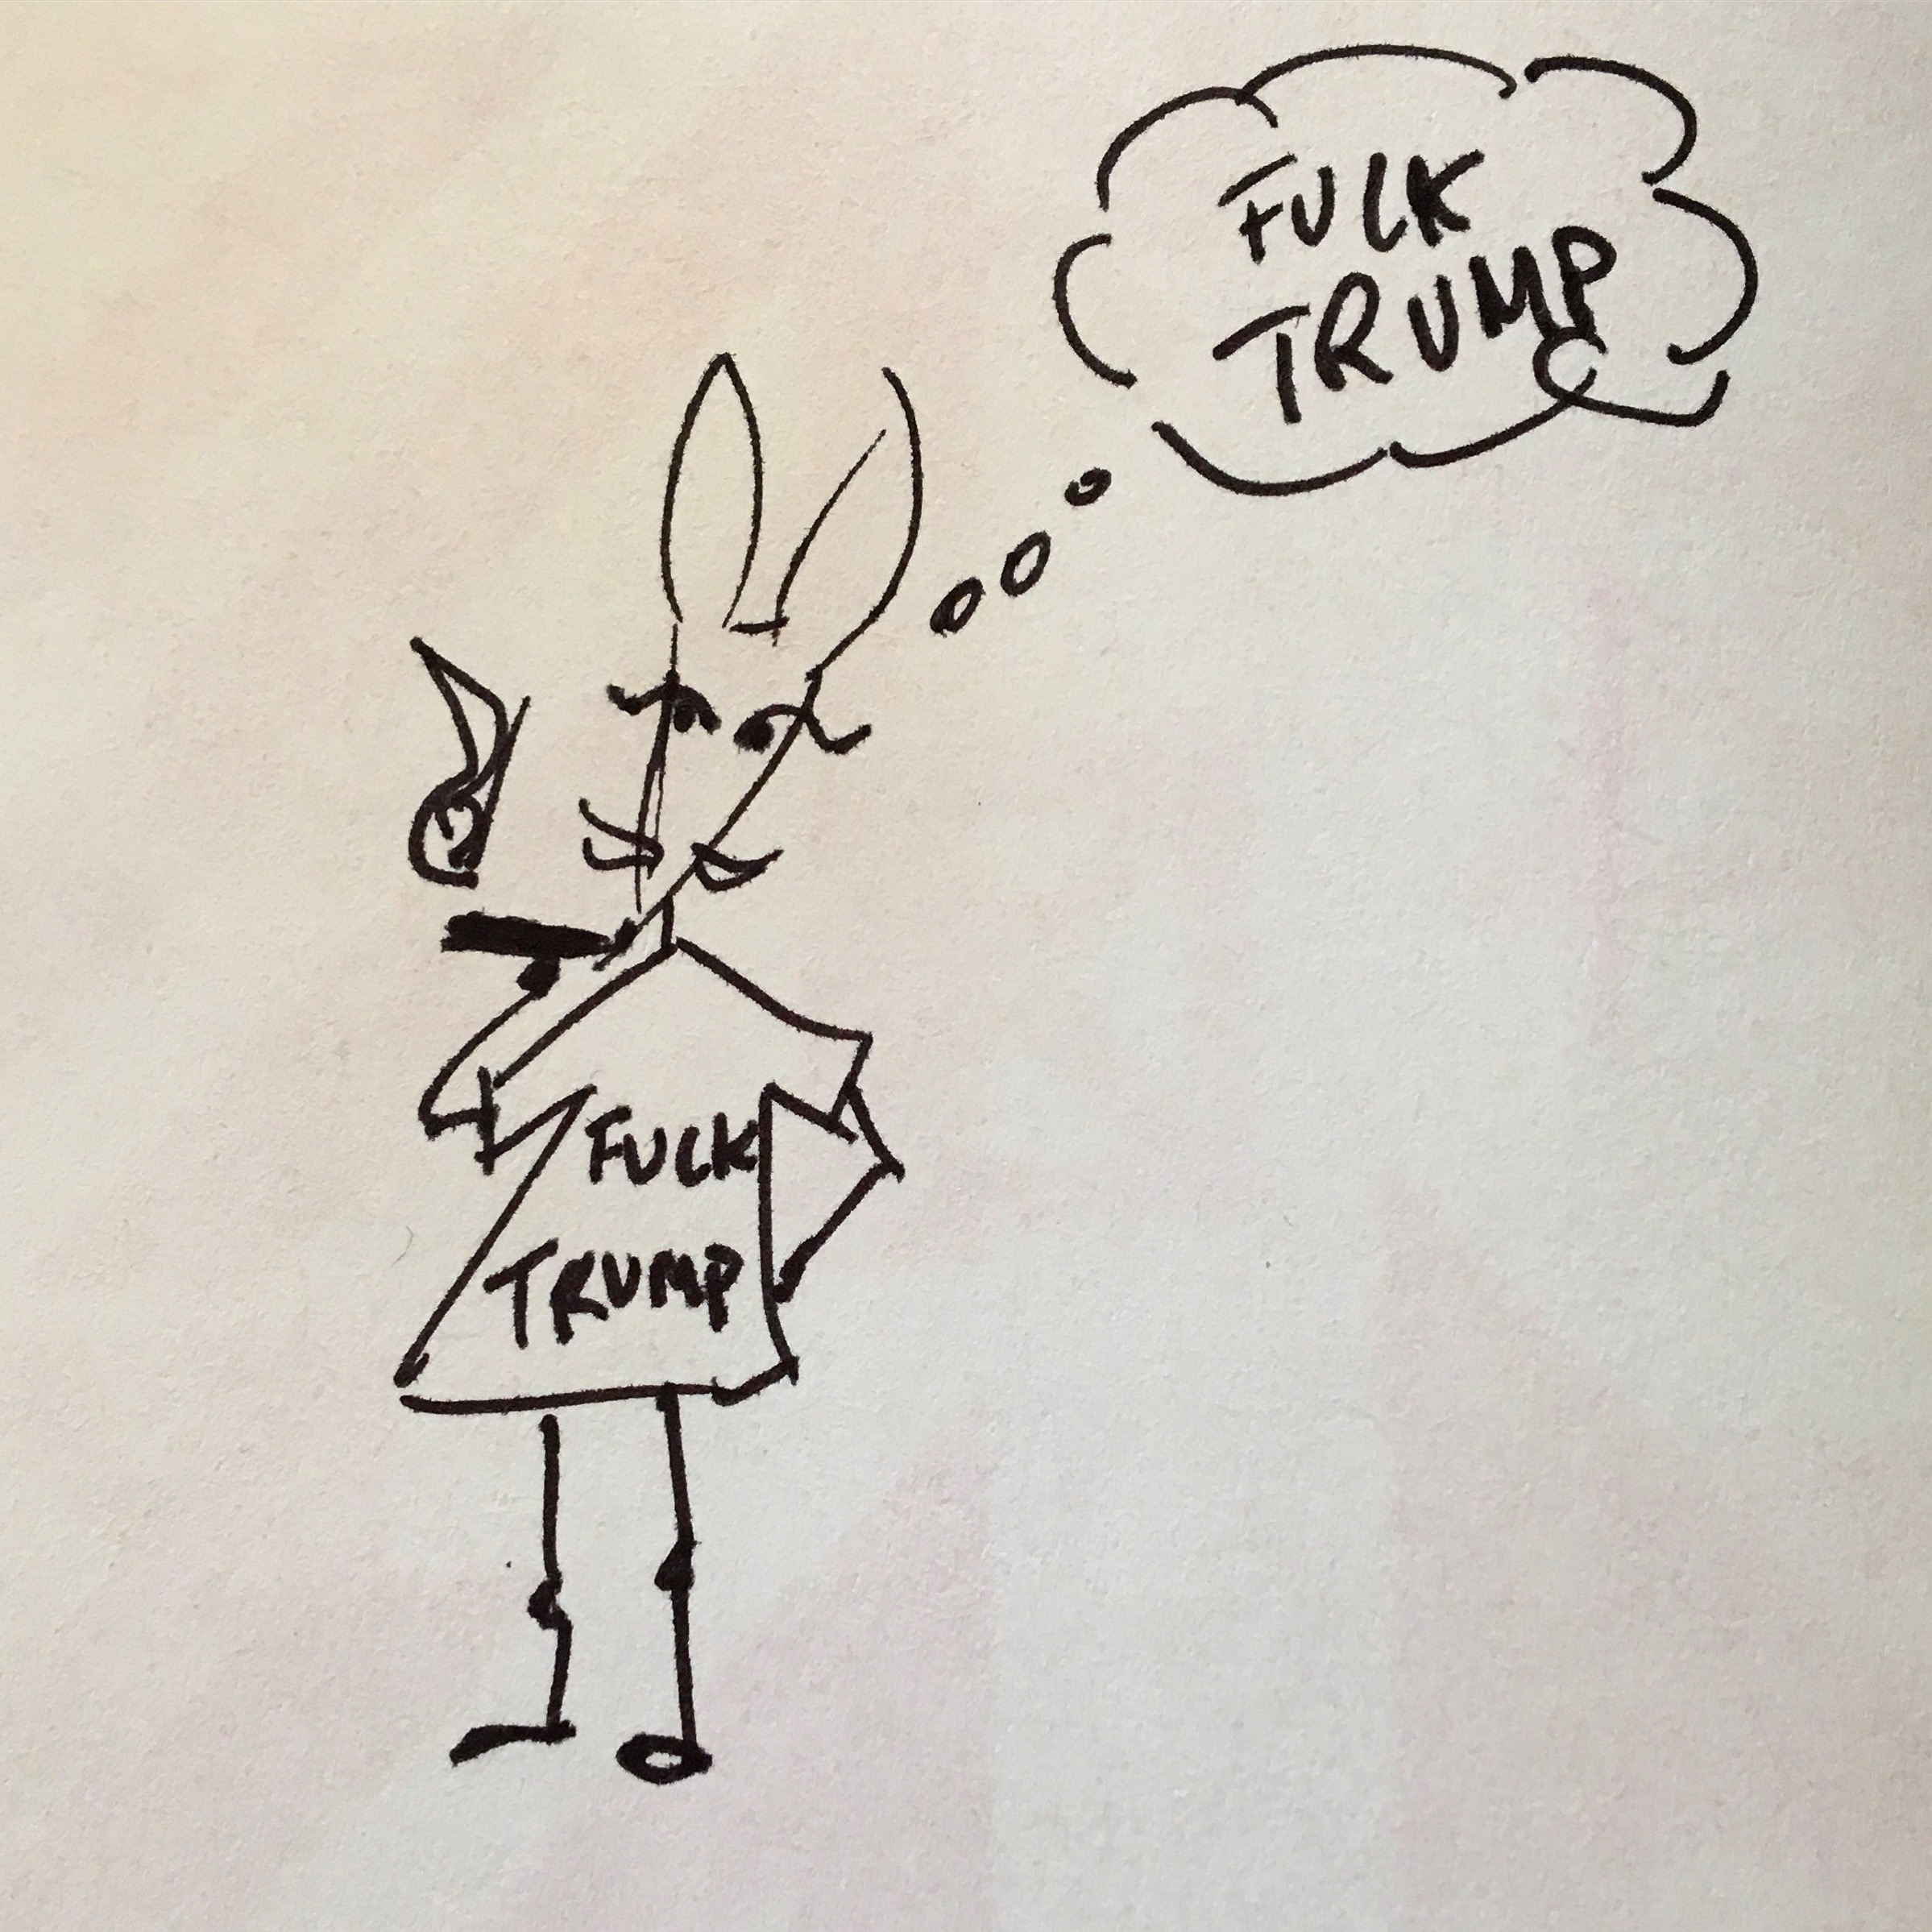 FUCK
TRUMP
FUCK
TRUMP